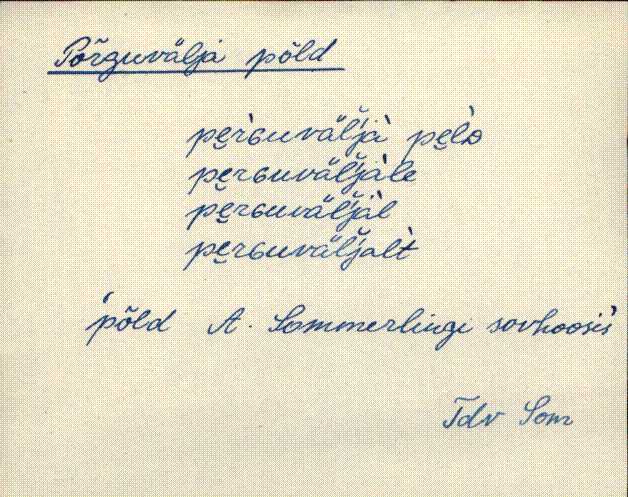 Põrguvälja põld
pe̮rɢuväľjà pe̮lᴅ
pe̮rɢuväľjàle
pe̮rɢuväľjàl
pe̮rɢuväľjalt
'põld A. Sommerlingi sovhoosis'
Tdv Som